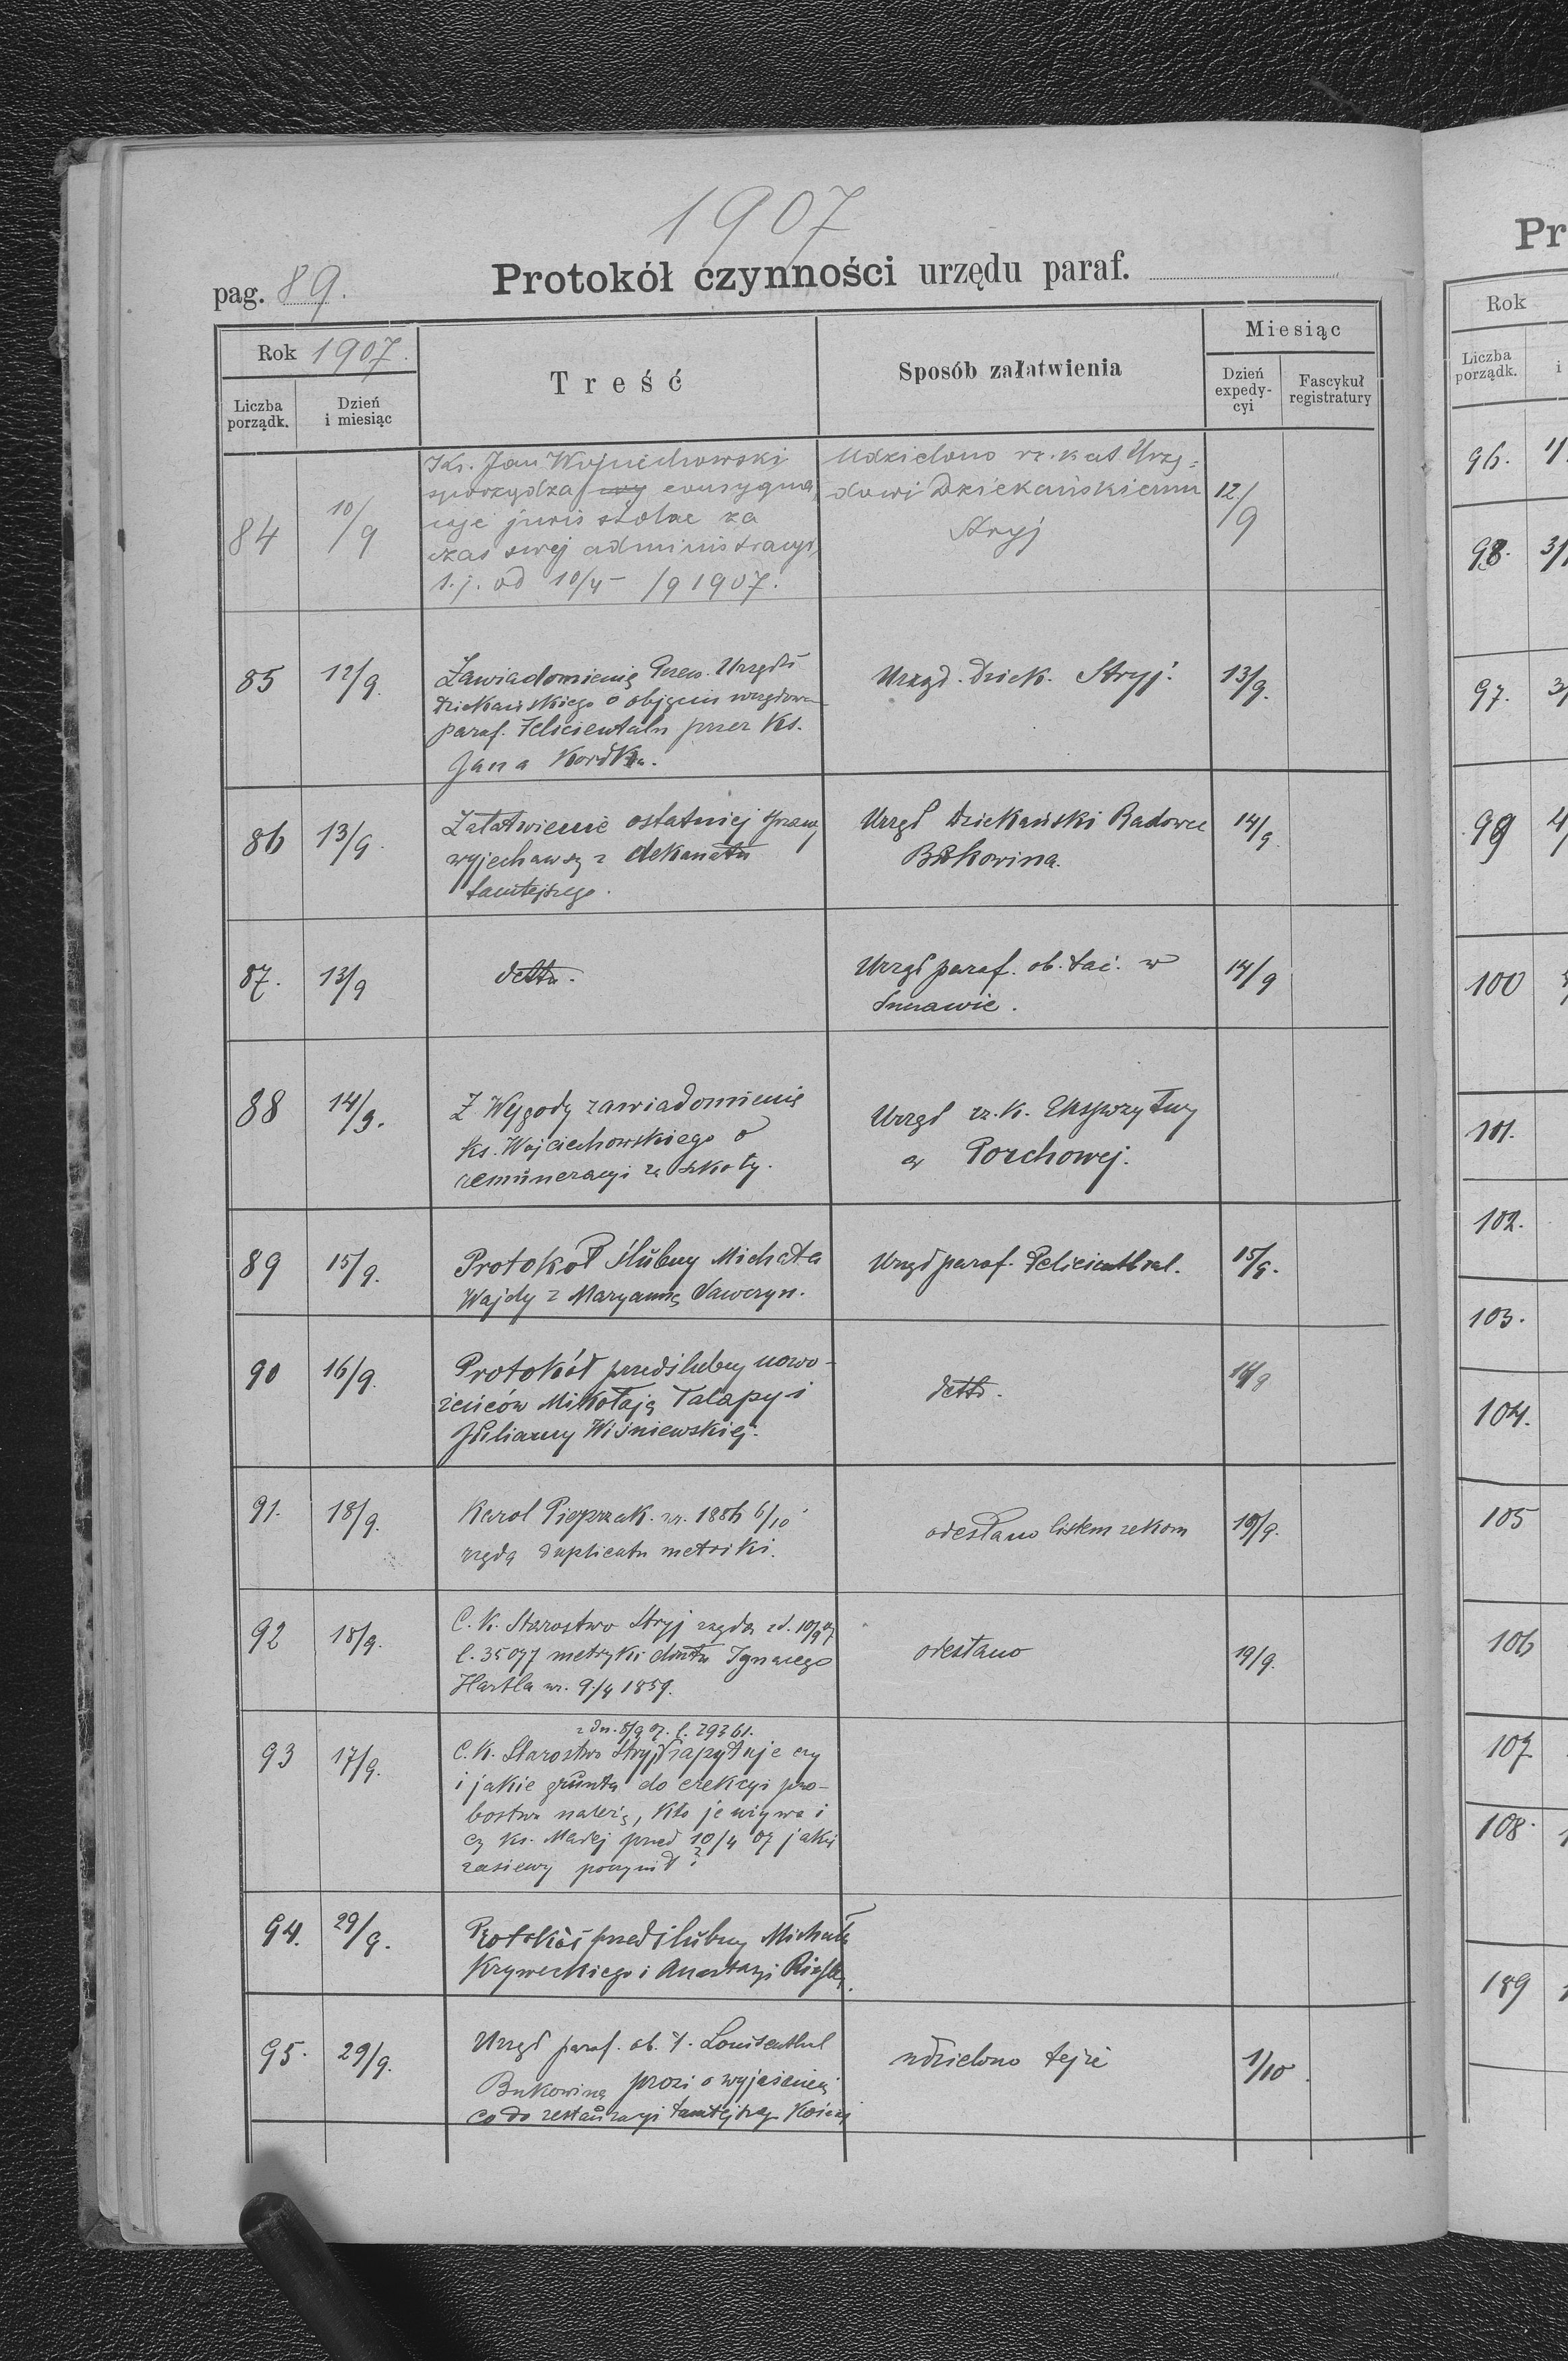 1907
pag. 89.
Protokół czynności urzędu paraf.
Rok 1907.
Liczba porządk.
Dzień i miesiąc
Treść
Sposób załatwienia
Miesiąc
Dzień expedy-cyi
Fascykuł registratury
84 10/9
Ks. Jan Wojciechowski
sporządza
juris stolae za
czas swej administracyi
t.j. od 10/4 - /9 1907.
Udzielono rz. kat Urzę-
dowi Dziekańskiemu
Stryj
12/9
85 12/9.
Zawiadomienie Przew. Urzędu
Dziekańskiego o objęciu urzędowa-
paraf. Felicientalu przez Ks.
Jana Kordka.
Urząd. Dziek. Stryj.
13/9.
86 13/9.
Załatwienie ostatniej sprawy
wyjechawszy z dekanatu
tamtejszego.
Urząd Dziekański Radowce
Bukowina.
14/9.
87. 13/9
detto.
Urząd paraf. ob. łać. w
14/9
88 14/9.
Z Wygody zawiadomienie
Ks. Wojciechowskiego o
remuneracyi za szkoły.
Urząd rz. k. Ekspozytury
w Porchowej.
89 15/9.
Protokół ślubny Michała
Wajdy z Maryanną Saweryn.
Urząd paraf. Felicienthal.
15/9.
90 16/9.
Protokół przedślubny nowo-
żeńców Mikołaja Talapy i
Julianny Wiśniewskiej.
detto.
91. 18/9.
Karol Pieprzak. ur. 1886 6/10
żąda duplicatu metriki.
odesłano listem rekom
19/9.
92 18/9.
C. K. Starostwo Stryj żąda z d. 10/9 07
l. 35077 metryki Ignacego
Hartla ur. 9/4 1859.
odesłano
19/9.
93 17/9.
z dn. 8/9 07. l. 29361.
C. K. Starostwo Stryj zapytuje czy
i jakie grunta do erekcyi pro-
bostwa należą, kto je używa i
czy ks. Maślej przed 10/4 07 jakie
zasiewy poczynił?
94. 29/9.
Protokół przedślubny Michała
Kryweckiego i Anastazyi
95. 29/9.
Urząd paraf. ob. ł. Louisenthal
Bukowina prosi o wyjaśnienie
co do restauracyi tamtejszego
udzielono tejże
1/10.
Pr
Rok
Liczba porządk.
i
96.
98.
97.
99
100
101.
102.
103.
104.
105
106
107
108.
109